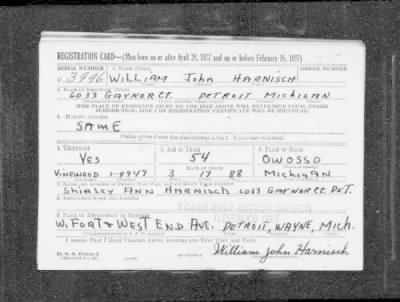 REGISTRATION CARD—(Men born on or after April 28, 1877 and on or before February 16, 1897)
SERIAL NUMBER 1. NAME (Print) ORDER NUMBER
U 3996 WILLIAM JOHN HARNISCH
2. PLACE OF RESIDENCE (Print)
6033 GAYNOR CT. DETROIT MICHIGAN
[THE PLACE OF RESIDENCE GIVEN ON THE LINE ABOVE WILL DETERMINE LOCAL BOARD
JURISDICTION; LINE 2 OF REGISTRATION CERTIFICATE WILL BE IDENTICAL]
3. MAILING ADDRESS
SAME
[Mailing address if other than place indicated on line 2. If same insert word same]
4. TELEPHONE 5. AGE IN YEARS 6. PLACE OF BIRTH
YES 54 OWOSSO
DATE OF BIRTH
VINEWOOD 1-9947 3 17 88 MICHIGAN
7. NAME AND ADDRESS OF PERSON WHO WILL ALWAYS KNOW YOUR ADDRESS
SHIRLEY ANN HARNISCH 6033 GAYNOR CT. DET.
8. EMPLOYER'S NAME AND ADDRESS
FISHER BODY DETROIT DIVISION
9. PLACE OF EMPLOYMENT OR BUSINESS
W. FORT & WEST END AVE. DETROIT, WAYNE, MICH.
I AFFIRM THAT I HAVE VERIFIED ABOVE ANSWERS AND THAT THEY ARE TRUE.
D. S. S. Form 1 William John Harnisch